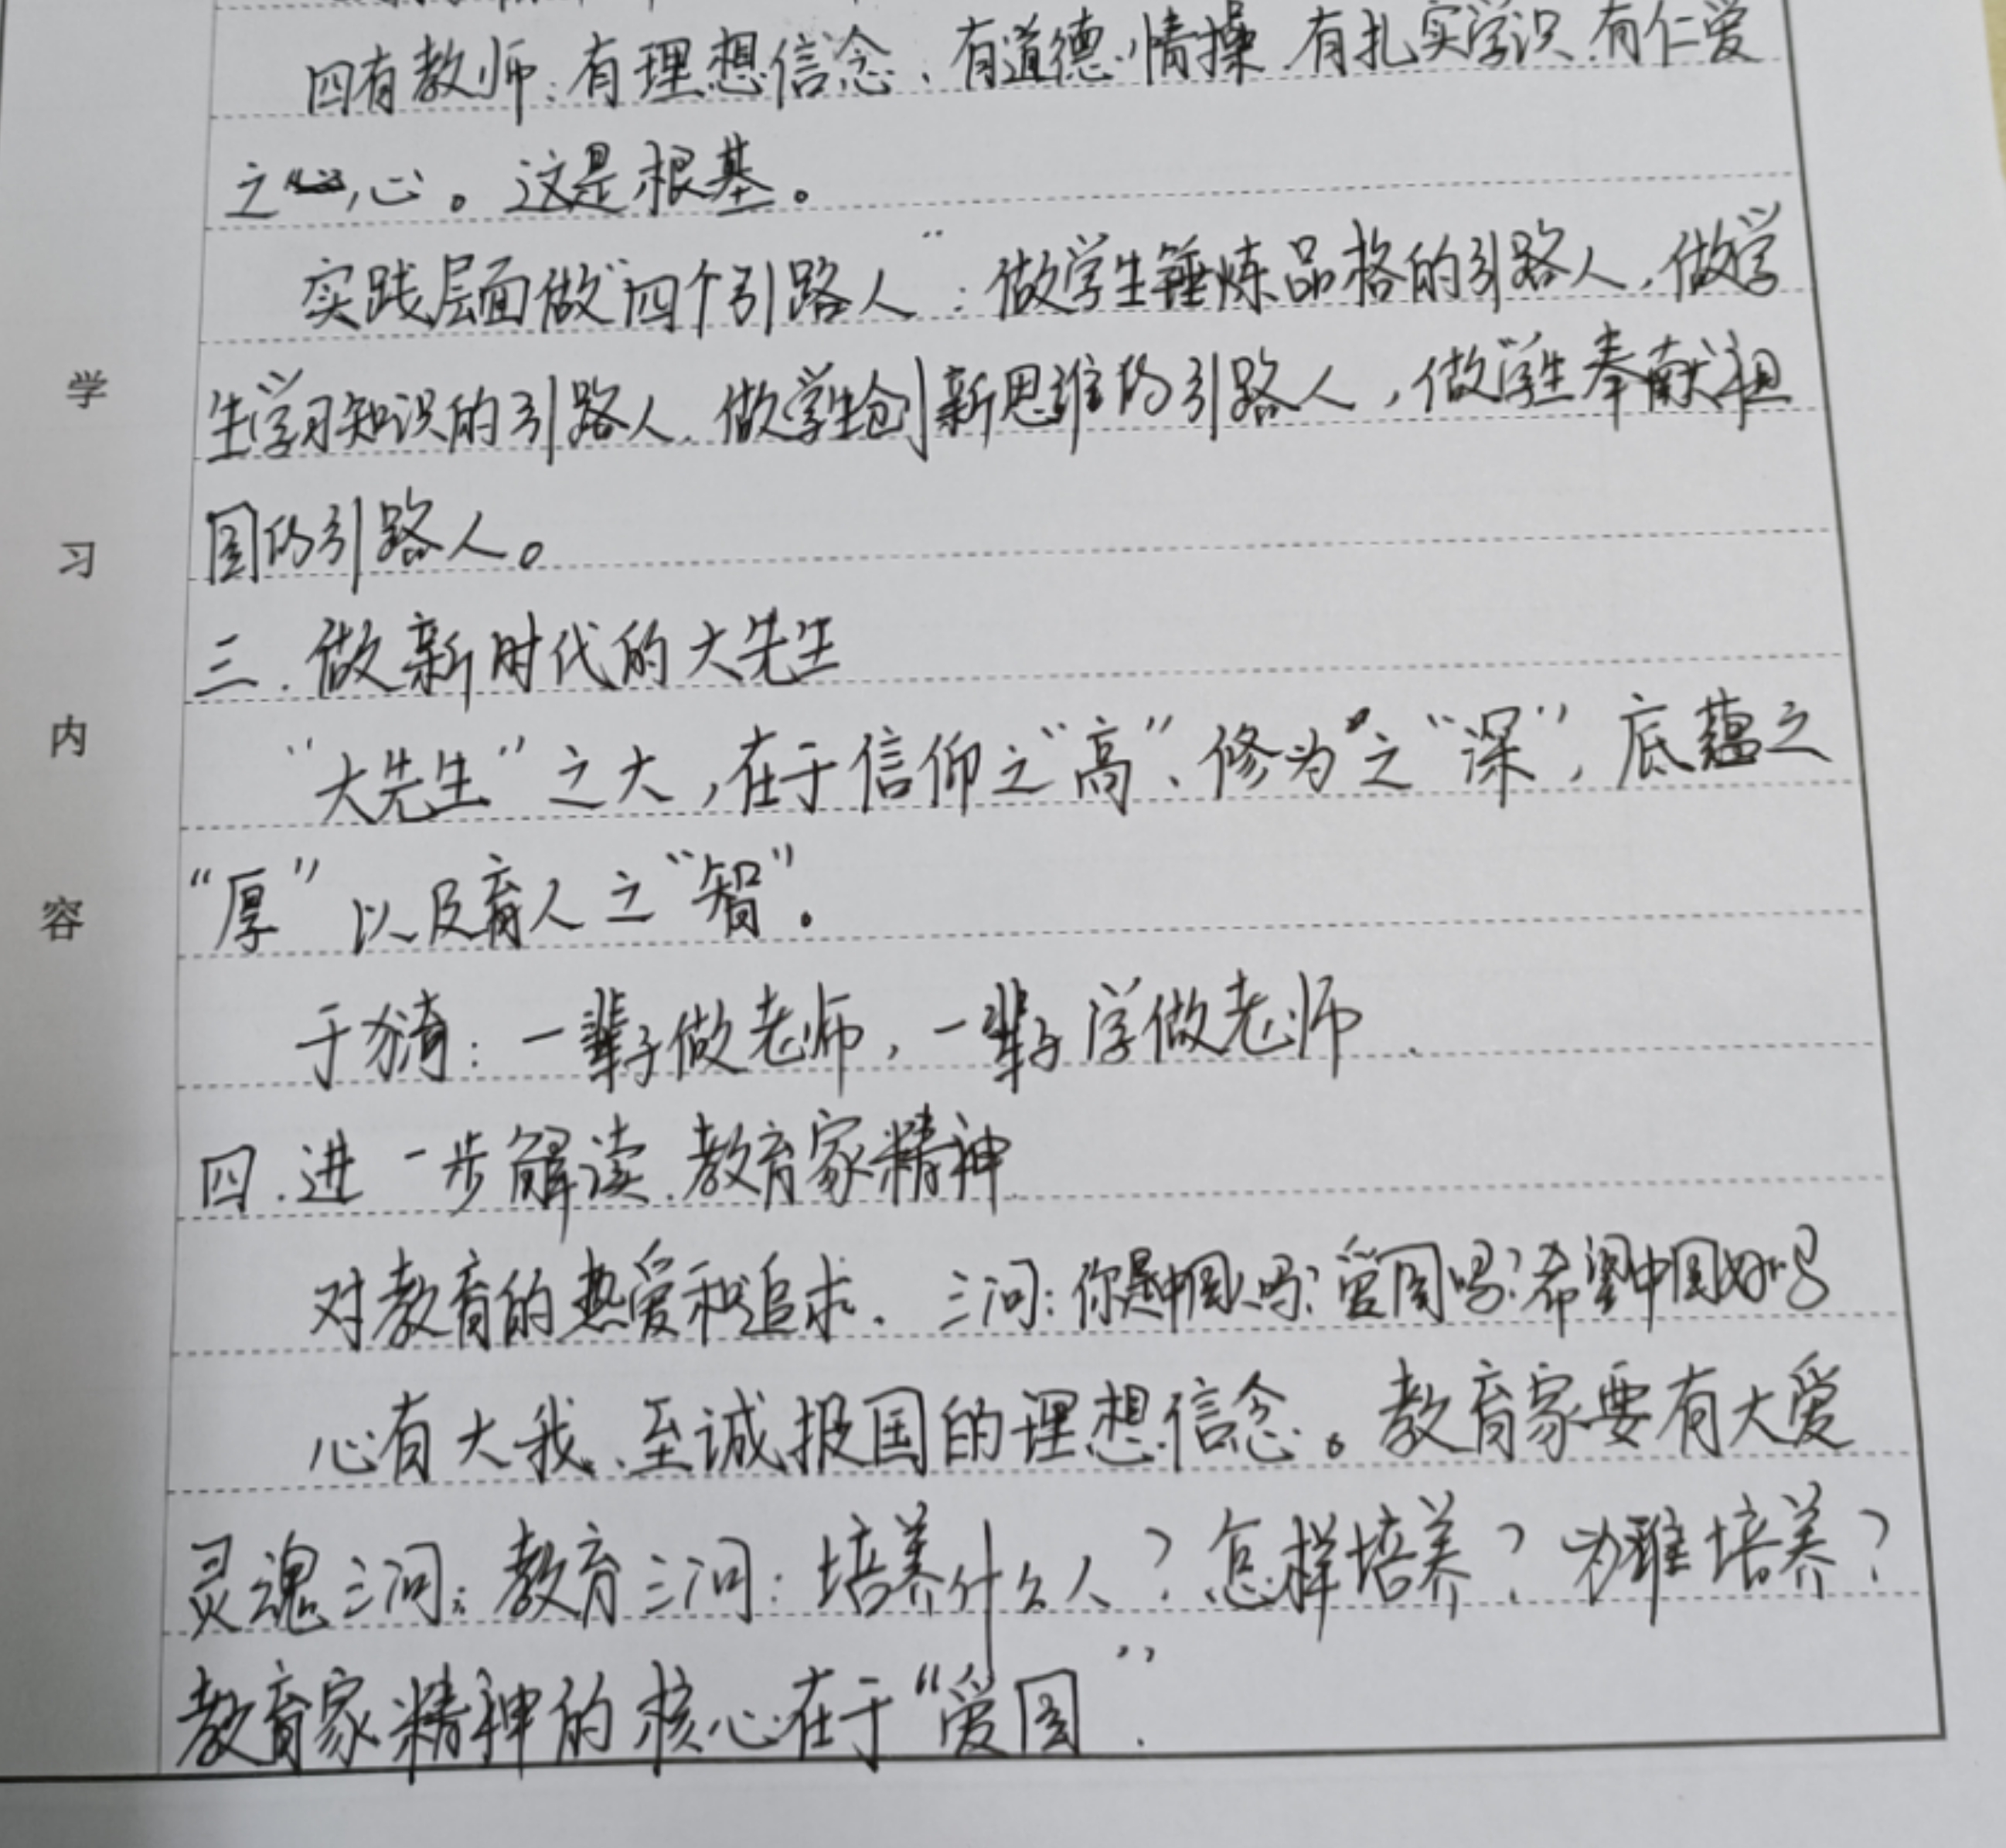 四有教师：有理想信念、有道德情操、有扎实学识、有仁爱
之心。这是根基。
实践层面做“四个引路人”：做学生锤炼品格的引路人，做学
生学习知识的引路人，做学生创新思维的引路人，做学生奉献祖
国的引路人。
三、做新时代的大先生
“大先生”之大，在于信仰之“高”、修为之“深”，底蕴之
“厚”以及育人之“智”。
于漪：一辈子做老师，一辈子学做老师．
四、进一步解读教育家精神
对教育的热爱和追求．三问：你是中国人吗？爱国吗？希望中国好吗
心有大我、至诚报国的理想信念。教育家要有大爱
灵魂三问；教育三问：培养什么人？怎样培养？为谁培养？
教育家精神的核心在于“爱国”．
学
习
内
容